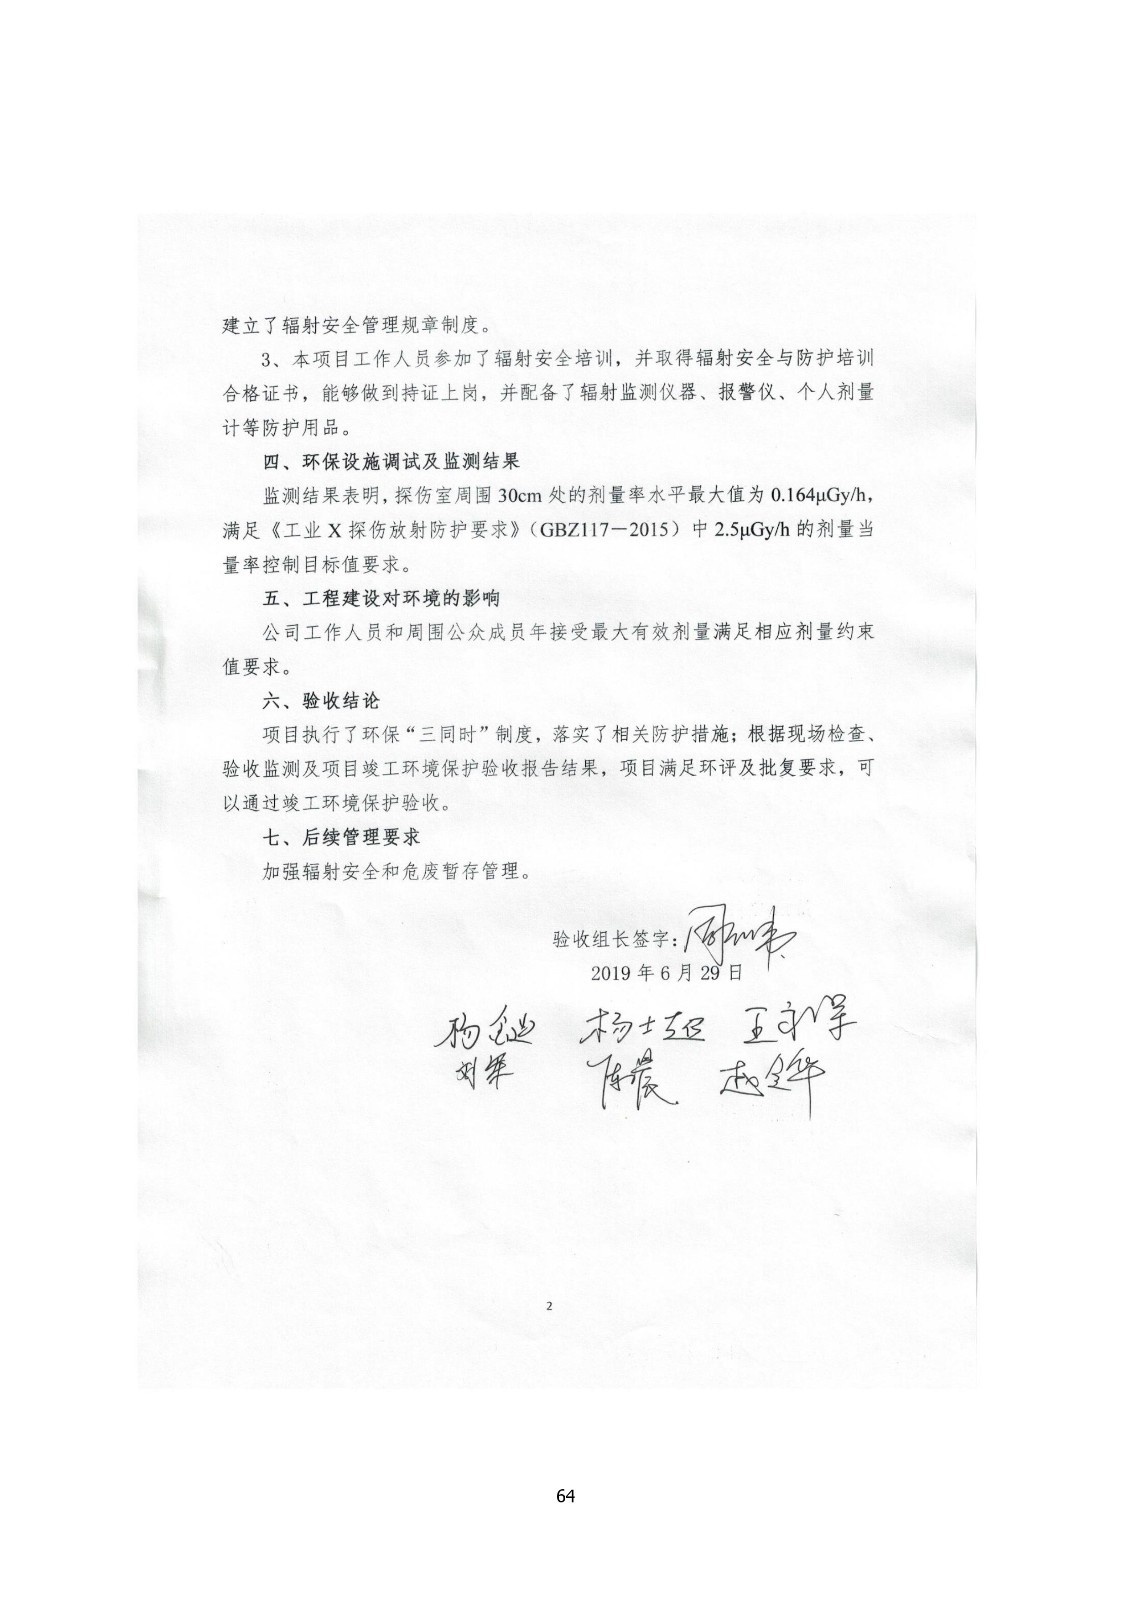 建立了辐射安全管理规章制度。
3、本项目工作人员参加了辐射安全培训，并取得辐射安全与防护培训
合格证书，能够做到持证上岗，并配备了辐射监测仪器、报警仪、个人剂量
计等防护用品。
四、环保设施调试及监测结果
监测结果表明，探伤室周围 30cm 处的剂量率水平最大值为 0.164μGy/h，
满足《工业 X 探伤放射防护要求》（GBZ117－2015）中 2.5μGy/h 的剂量当
量率控制目标值要求。
五、工程建设对环境的影响
公司工作人员和周围公众成员年接受最大有效剂量满足相应剂量约束
值要求。
六、验收结论
项目执行了环保“三同时”制度，落实了相关防护措施；根据现场检查、
验收监测及项目竣工环境保护验收报告结果，项目满足环评及批复要求，可
以通过竣工环境保护验收。
七、后续管理要求
加强辐射安全和危废暂存管理。
验收组长签字：
2019 年 6 月 29 日
杨士超
刘军 陈晨
2
64